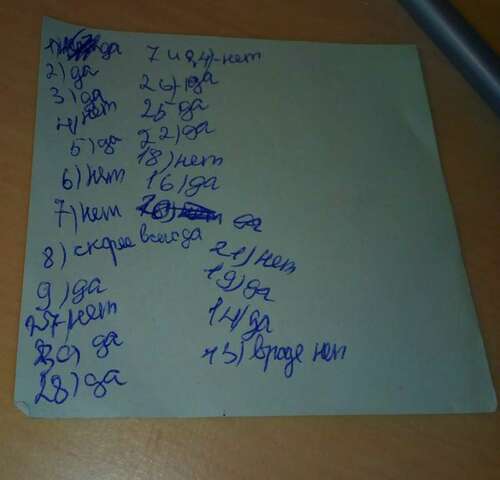 1) да
2) да
3) да
4) нет
5) да
6) нет
7) нет
8) скорее всего да
9) да
27-нет
30) да
28) да
7 и 9,4)-нет
26) да
25 да
22) да
18) нет
16) да
да
21) нет
19) да
14) да
13) вроде нет